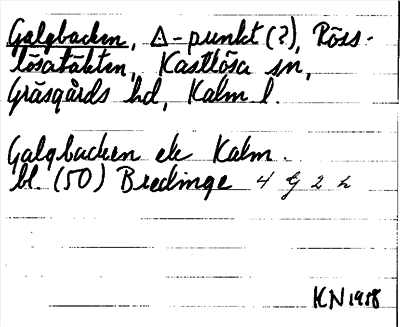 Galgbacken, △-punkt (?), Röss-
lösatäkten, Kastlösa sn,
Gräsgårds hd, Kalm. l.
Galgbacken ek Kalm.
bl. (50) Bredinge 4 G 2 h
KN 1958